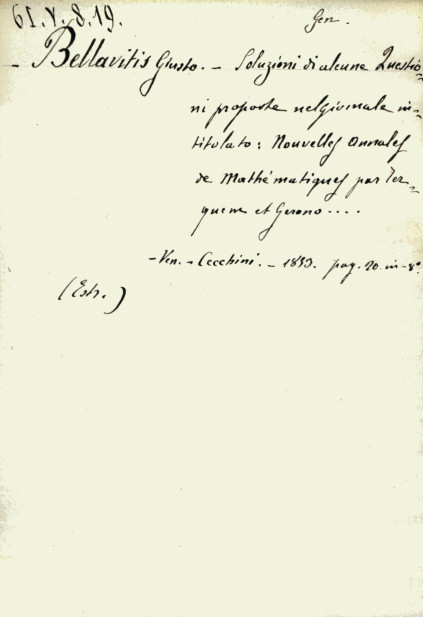 61.V.8.19.
Gen.
- Bellavitis Giusto. - Soluzioni di alcune Questio-
ni proposte nel giornale in-
titolato: Nouvelles Annales
de Mathématiques par Ter-
quem et Gerono....
- Ven. - Cecchini. - 1853. pag. 20. in-8°
(Estr.)